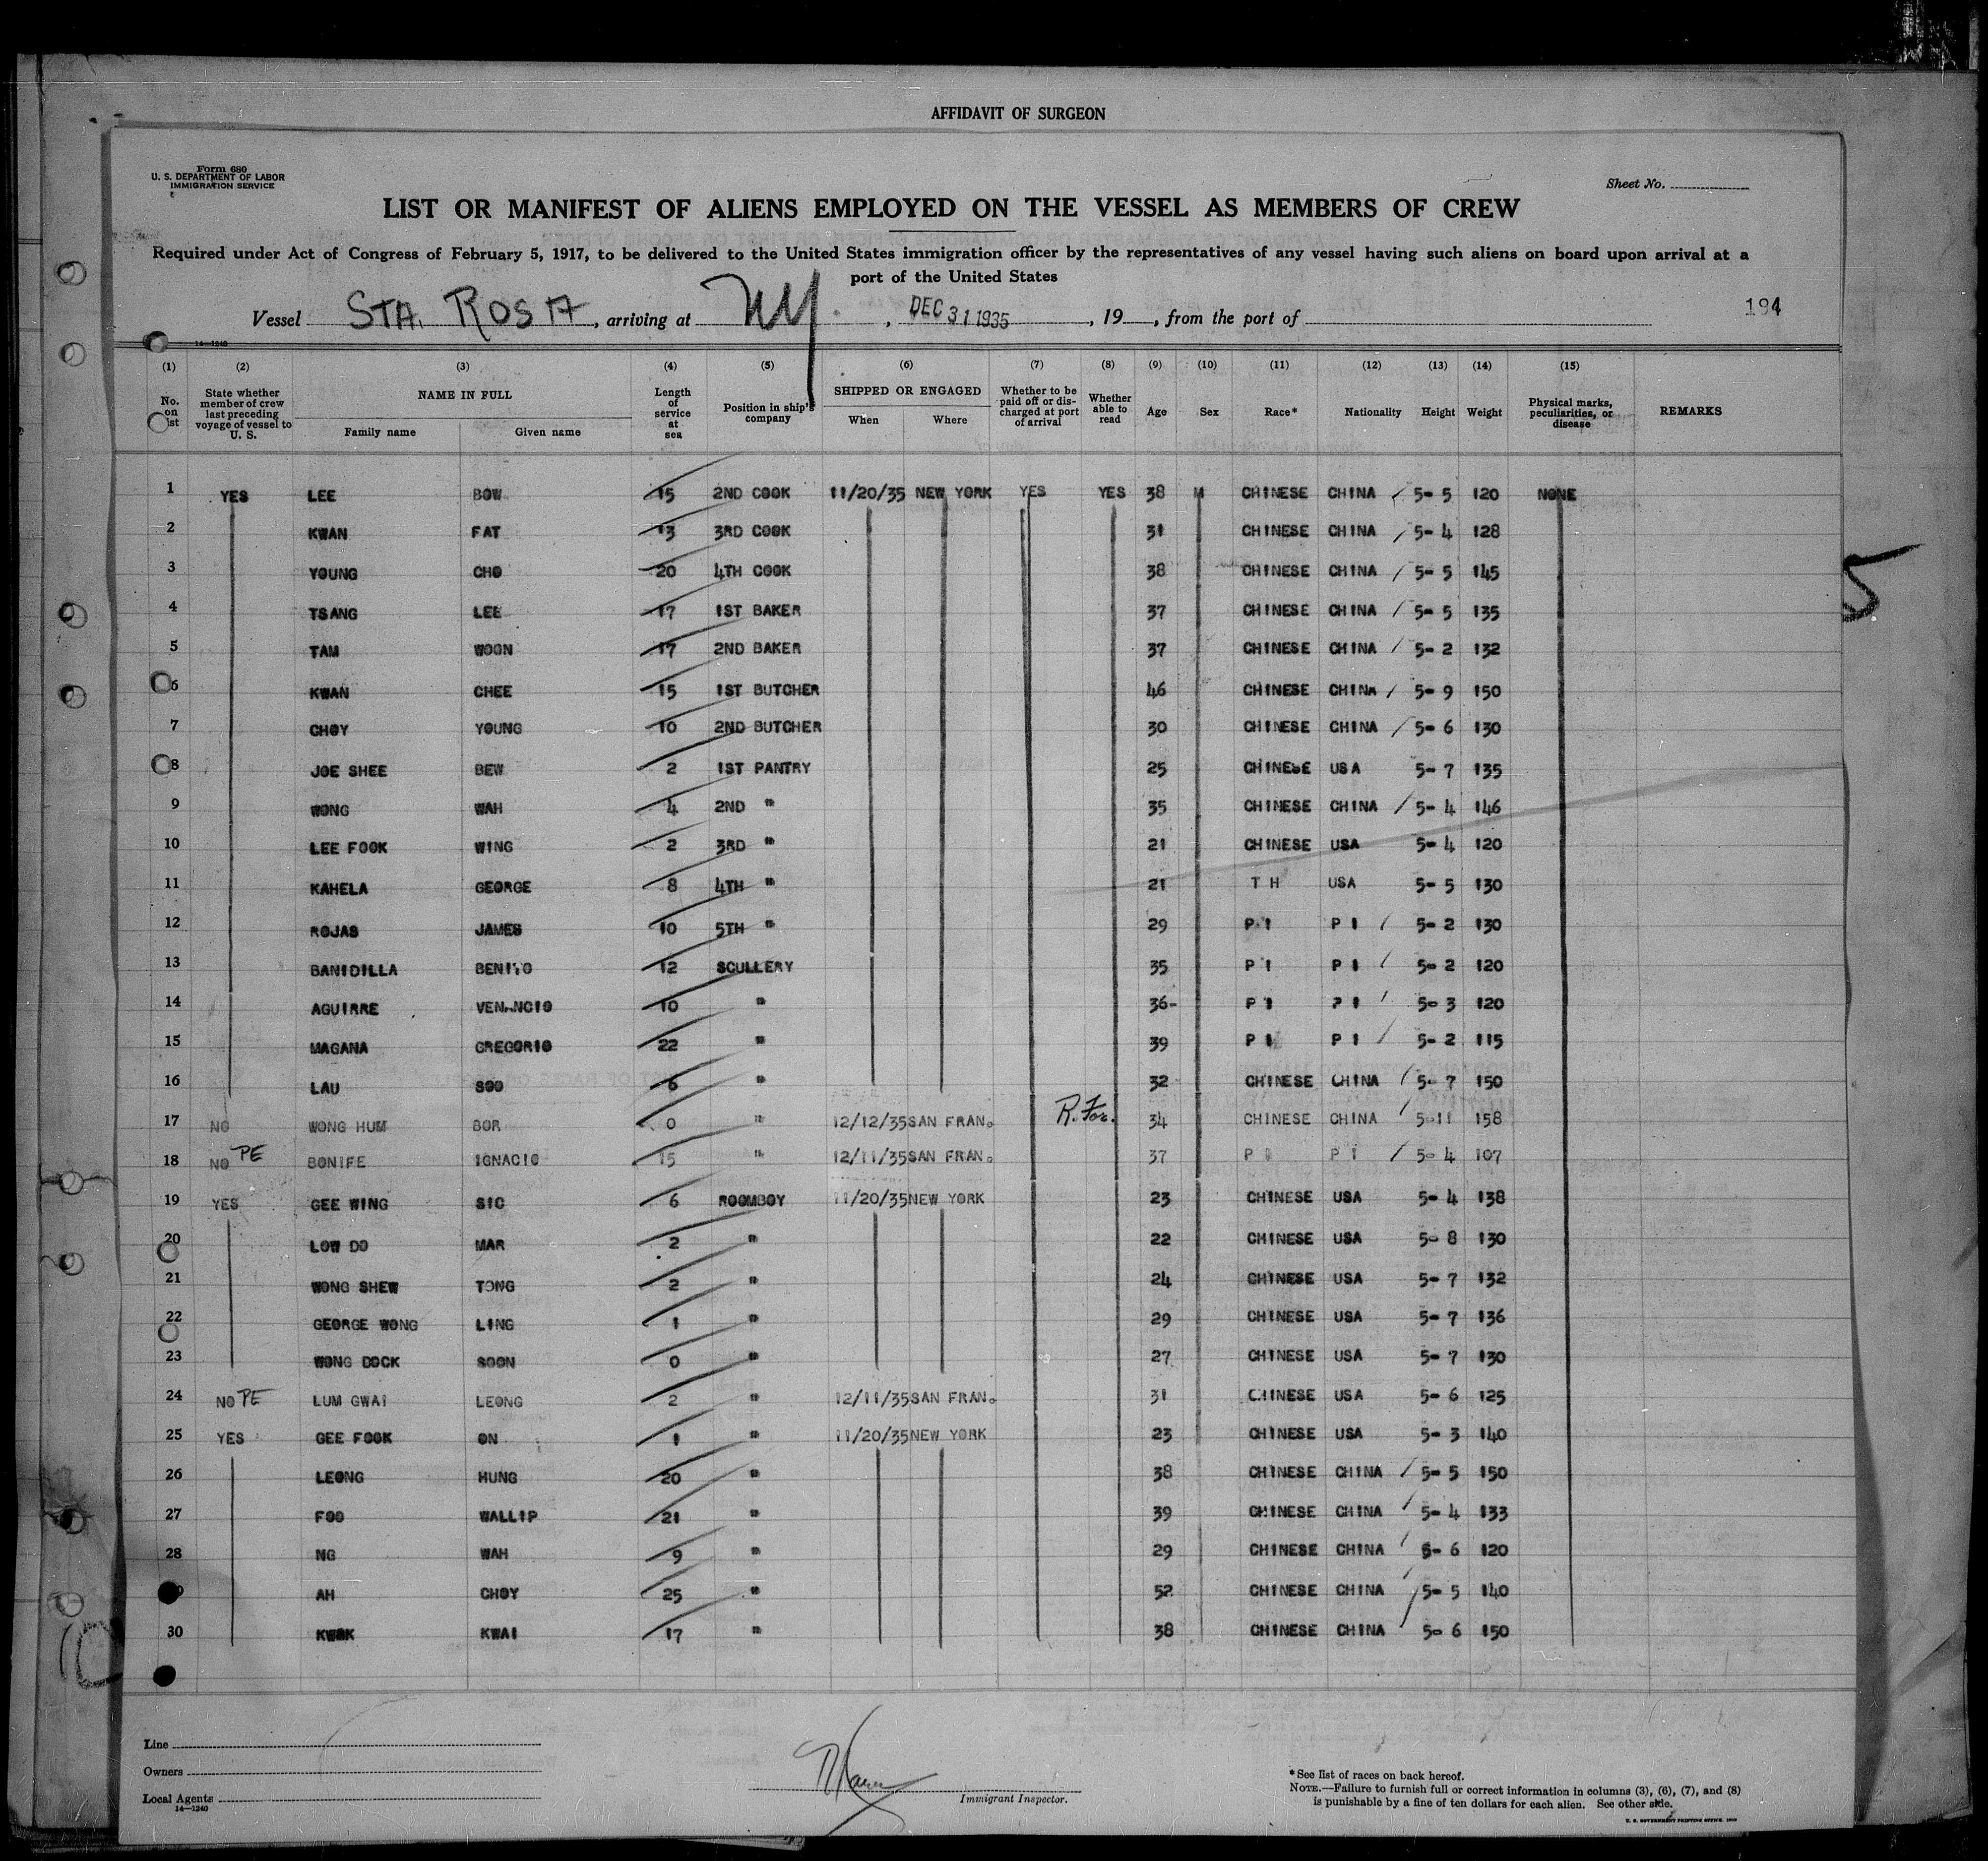 AFFIDAVIT OF SURGEON
Form 680
U. S. DEPARTMENT OF LABOR
IMMIGRATION SERVICE
Sheet No.
LIST OR MANIFEST OF ALIENS EMPLOYED ON THE VESSEL AS MEMBERS OF CREW
Required under Act of Congress of February 5, 1917, to be delivered to the United States immigration officer by the representatives of any vessel having such aliens on board upon arrival at a
port of the United States
Vessel STA. ROSA, arriving at NY, DEC 31 1935, 19, from the port of
194
14—1240
(1) (2) (3) (4) (5) (6) (7) (8) (9) (10) (11) (12) (13) (14) (15)
No. on list
State whether member of crew last preceding voyage of vessel to U. S.
NAME IN FULL
Family name Given name
Length of service at sea
Position in ship's company
SHIPPED OR ENGAGED
When Where
Whether to be paid off or discharged at port of arrival
Whether able to read
Age Sex Race* Nationality Height Weight
Physical marks, peculiarities, or disease
REMARKS
1 YES LEE BOW 15 2ND COOK 11/20/35 NEW YORK YES YES 38 M CHINESE CHINA 5-5 120 NONE
2 KWAN FAT 13 3RD COOK 31 CHINESE CHINA 5-4 128
3 YOUNG CHO 20 4TH COOK 38 CHINESE CHINA 5-5 145
4 TSANG LEE 17 1ST BAKER 37 CHINESE CHINA 5-5 135
5 TAM WOON 17 2ND BAKER 37 CHINESE CHINA 5-2 132
6 KWAN CHEE 15 1ST BUTCHER 46 CHINESE CHINA 5-9 150
7 CHOY YOUNG 10 2ND BUTCHER 30 CHINESE CHINA 5-6 130
8 JOE SHEE BEW 2 1ST PANTRY 25 CHINESE USA 5-7 135
9 WONG WAH 4 2ND " 35 CHINESE CHINA 5-4 146
10 LEE FOOK WING 2 3RD " 21 CHINESE USA 5-4 120
11 KAHELA GEORGE 8 4TH " 21 T H USA 5-5 130
12 ROJAS JAMES 10 5TH " 29 P I P I 5-2 130
13 BANIDILLA BENITO 12 SCULLERY 35 P I P I 5-2 120
14 AGUIRRE VENANCIO 10 " 36- P I P I 5-3 120
15 MAGANA GREGORIO 22 " 39 P I P I 5-2 115
16 LAU SOO 6 " 32 CHINESE CHINA 5-7 150
17 NO WONG HUM BOR 0 " 12/12/35 SAN FRAN. R. For. 34 CHINESE CHINA 5-11 158
18 NO PE BONIFE IGNACIO 15 " 12/11/35 SAN FRAN. 37 P I P I 5-4 107
19 YES GEE WING SIC 6 ROOMBOY 11/20/35 NEW YORK 23 CHINESE USA 5-4 138
20 LOW DO MAR 2 " 22 CHINESE USA 5-8 130
21 WONG SHEW TONG 2 " 24 CHINESE USA 5-7 132
22 GEORGE WONG LING 1 " 29 CHINESE USA 5-7 136
23 WONG DOCK SOON 0 " 27 CHINESE USA 5-7 130
24 NO PE LUM GWAI LEONG 2 " 12/11/35 SAN FRAN. 31 CHINESE USA 5-6 125
25 YES GEE FOOK ON 1 " 11/20/35 NEW YORK 23 CHINESE USA 5-3 140
26 LEONG HUNG 20 " 38 CHINESE CHINA 5-5 150
27 FOO WALLIP 21 " 39 CHINESE CHINA 5-4 133
28 NG WAH 9 " 29 CHINESE CHINA 5-6 120
AH CHOY 25 " 52 CHINESE CHINA 5-5 140
30 KWOK KWAI 17 " 38 CHINESE CHINA 5-6 150
5
Line
Owners
Local Agents
14—1240
Immigrant Inspector.
*See list of races on back hereof.
NOTE.—Failure to furnish full or correct information in columns (3), (6), (7), and (8)
is punishable by a fine of ten dollars for each alien. See other side.